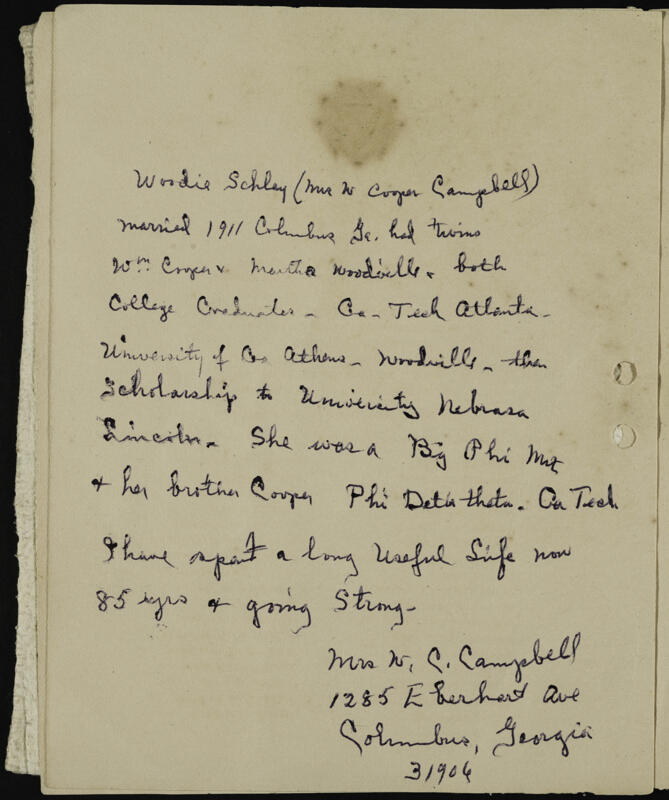 Woodie Schley (Mrs W Cooper Campbell)
married 1911 Columbus Ga. had twins
Wm Cooper & Martha Woodville & both
College Graduates - Ga - Tech Atlanta -
University of Ga Athens - Woodville - then
Scholarship to University Nebrasa
Lincoln - She was a Big Phi
& her brother Cooper Phi Delta theta. Ga Tech
I have spent a long Useful Life now
85 yrs & going Strong -
Mrs W. C. Campbell
1285 Eberhart Ave
Columbus, Georgia
31906